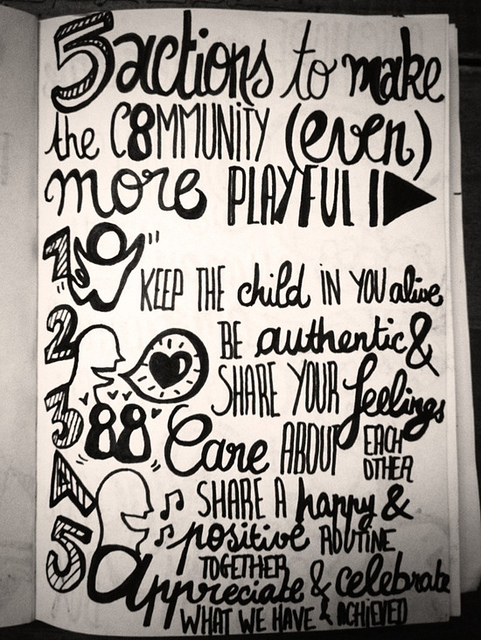 5 actions to make
the COMMUNITY (even)
more PLAYFUL
1 KEEP THE child IN YOU alive
2 BE authentic &
SHARE YOUR feelings
3 Care ABOUT EACH
OTHER
4 SHARE A happy &
positive ROUTINE
TOGETHER
5 Appreciate & celebrate
WHAT WE HAVE & ACHIEVED